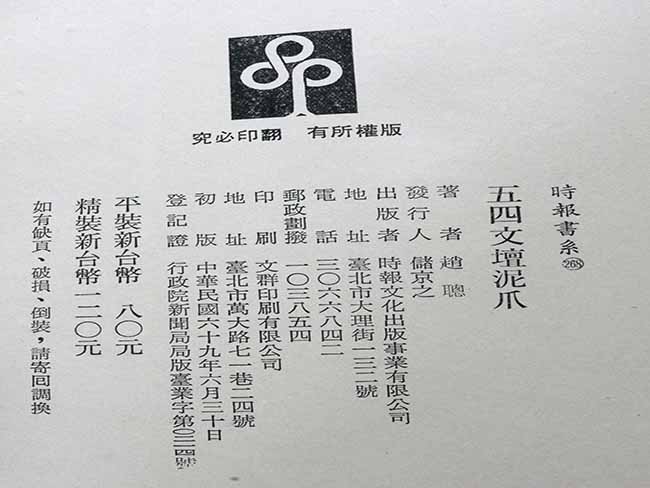 版權所有 翻印必究
時報書系268
五四文壇泥爪
著者 趙聰
發行人 儲京之
出版者 時報文化出版事業有限公司
地址 臺北市大理街一三二號
電話 三〇六六八四二
郵政劃撥 一〇三八五四
印刷 文群印刷有限公司
地址 臺北市萬大路七一巷二四號
初版 中華民國六十九年六月三十日
登記證 行政院新聞局局版臺業字第〇二一四號
平裝新台幣 八〇元
精裝新台幣一二〇元
如有缺頁、破損、倒裝，請寄回調換